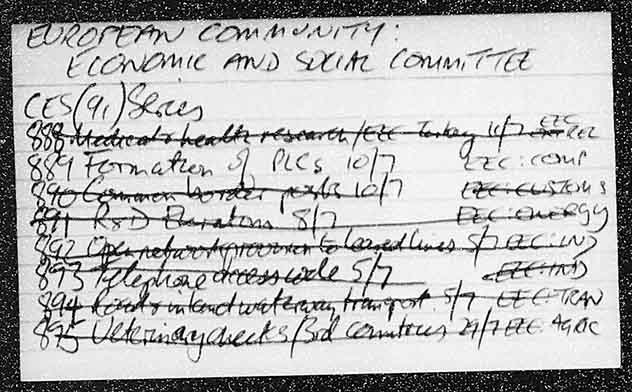 EUROPEAN COMMUNITY:
ECONOMIC AND SOCIAL COMMITTEE
CES(91) Series
888 Medical & health research / EEC Turkey 11/7 EEC REL
889 Formation of PLCs 10/7 EEC: COMP
890 Common border posts 10/7 EEC: CUSTOMS
891 R&D Euratom 8/7 EEC: ENERGY
892 Open network provision to leased lines 5/7 EEC: IND
893 Telephone access code 5/7 EEC: IND
894 Road & inland waterway transport 5/7 EEC: TRAN
895 Veterinary checks / 3rd countries 29/7 EEC: AGRIC